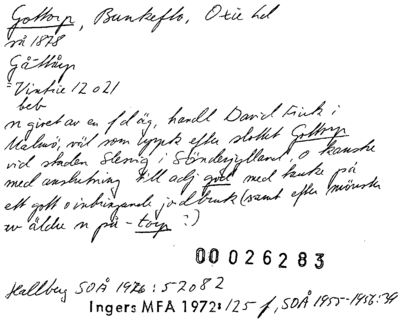 Gottorp, Bunkeflo, Oxie hd
så 1878
Gå-ttårp
=Vintrie 12 o 21
beb
n givet av en f d äg, handl David Finck i
Malmö, väl som uppk efter slottet Gottorp
vid staden Slesvig i Sönderjylland, o kanske
med anslutning till adj god med tanke på
ett gott o inbringande jordbruk (samt efter mönster
av äldre n på -torp ?)
00 026283
Hallberg SOÅ 1976:52 082
Ingers MFA 1972:125 f, SOÅ 1955-1956:39